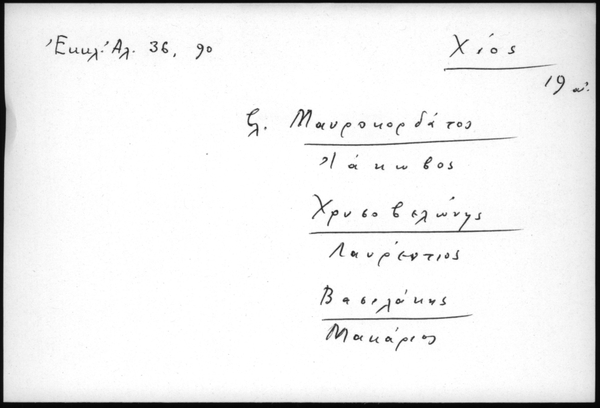 Ἐκκλ. Ἀλ. 36, 90
Χίος
19 αἰ.
βλ. Μαυροκορδάτος
Ἰάκωβος
Χρυσοβελώνης
Λαυρέντιος
Βασιλάκης
Μακάριος